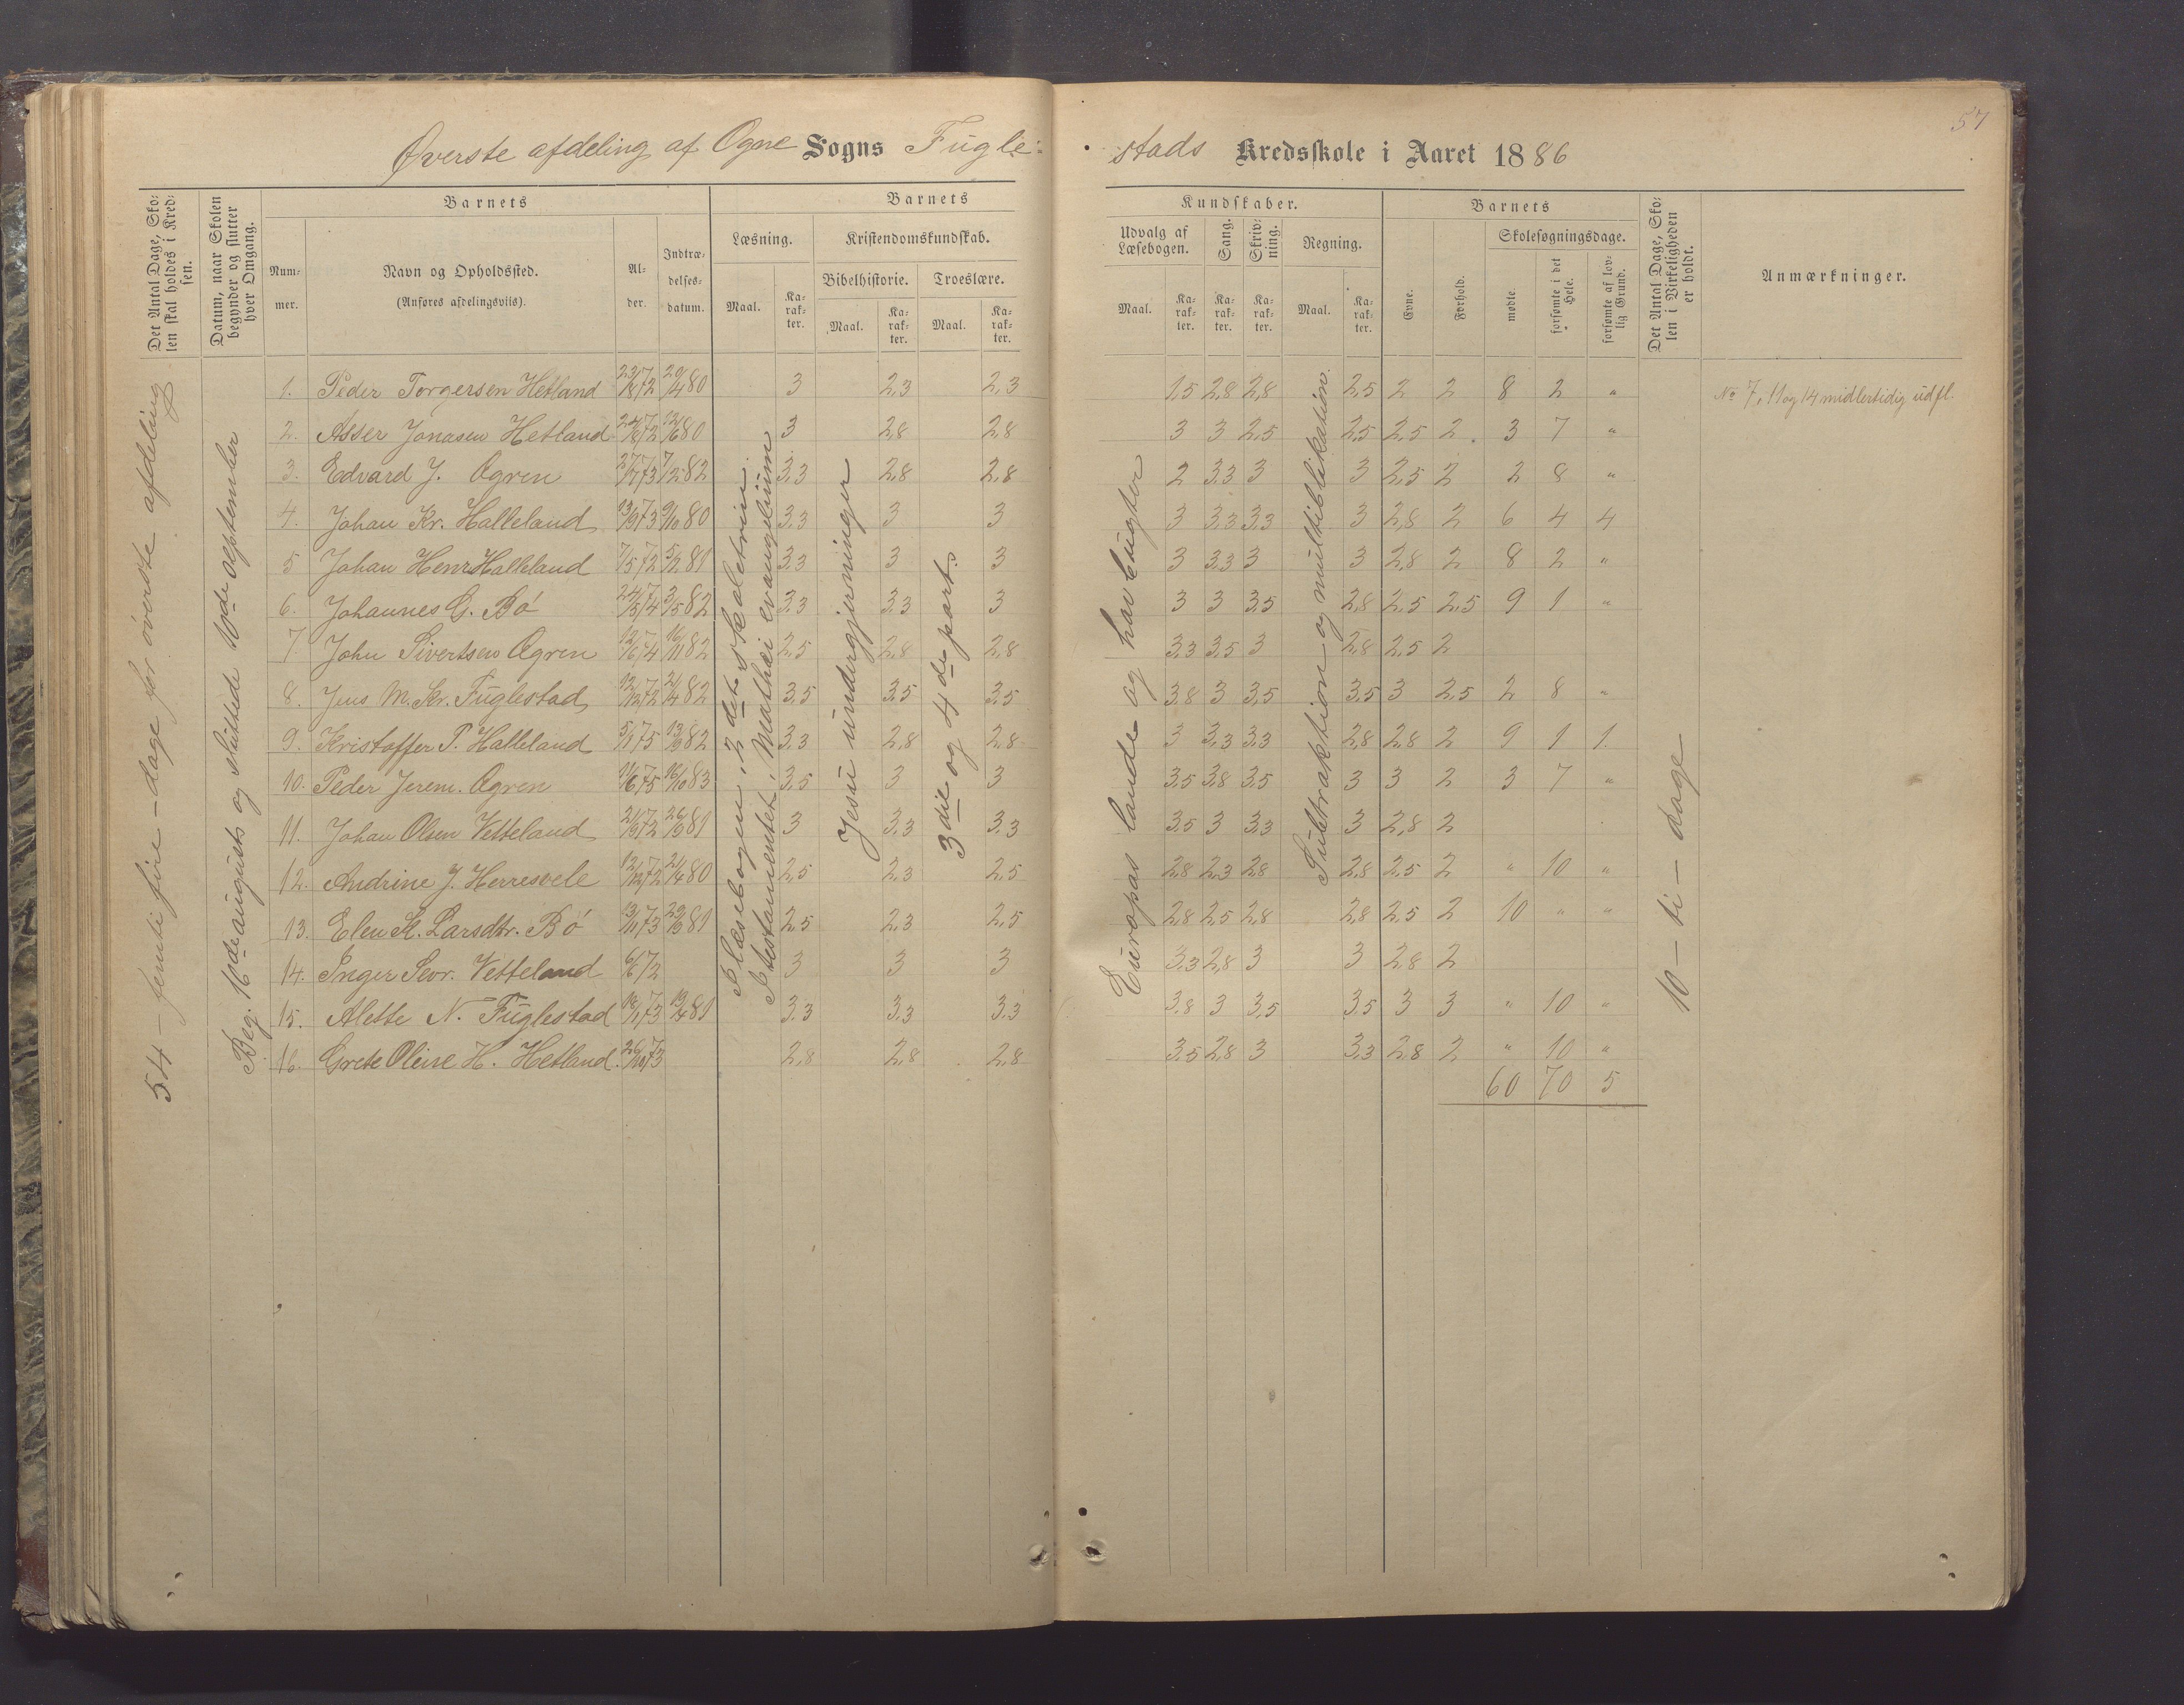 57
Øverste afdeling af Ogne Sogns Fugle-
stads Kredsskole i Aaret 1886
Det Antal Dage, Sko-
len skal holdes i Kred-
sen.
Datum, naar Skolen
begynder og slutter
hver Omgang.
Barnets
Num-
mer.
Navn og Opholdssted.
(Anføres afdelingsvis).
Al-
der.
Indtræ-
delses-
datum.
Barnets
Læsning.
Maal.
Ka-
rak-
ter.
Kristendomskundskab.
Bibelhistorie.
Maal.
Ka-
rak-
ter.
Troeslære.
Maal.
Ka-
rak-
ter.
Kundskaber.
Udvalg af
Læsebogen.
Maal.
Ka-
rak-
ter.
Sang.
Ka-
rak-
ter.
Skriv-
ning.
Ka-
rak-
ter.
Regning.
Maal.
Ka-
rak-
ter.
Barnets
Evne.
Forhold.
Skolesøgningsdage.
mødte.
forsømte i det
Hele.
forsømte af lov-
lig Grund.
Det Antal Dage, Sko-
len i Virkeligheden
er holdt.
Anmærkninger.
54 – femti fire – dage for øverste afdeling
Beg. 16de augusts og sluttede 10de september
A læsebogen, 2det skoletrin.
A testamentet, Mathæi evangelium
Jesu undergjerninger
3die og 4de part.
Europas lande og hav bugter
Subtraktion og multiblikation.
10 – ti – dage
1. Peder Torgersen Hetland 23/8 72 29/4 80 3 2,3 2,3 1,5 2,8 2,8 2,5 2 2 8 2 " No 7, 11 og 14 midlertidig udfl.
2. Asser Jonasen Hetland 3 2,8 2,8 3 3 2,5 2,5 2,5 2 3 7 "
3. Edvard J. Ogren 7/12 82 3,3 2,8 2,8 2 3,3 3 3 2,5 2 2 8 "
4. Johan Kr. Halleland 13/9 73 9/10 80 3,3 3 3 3 3,3 3,3 3 2,8 2 6 4 4
5 Johan Henr Halleland 7/5 72 5/12 81 3,3 3 3 3 3,3 3 3 2,8 2 8 2 "
6. Johannes G. Bø 24/5 74 3/5 82 3,3 3,3 3 3 3 3,5 2,8 2,5 2,5 9 1 "
7. John Sivertsen Ogren 12/6 74 16/11 82 2,5 2,8 2,8 3,3 3,5 3 2,8 2,5 2
8. Jens M. Kr. Fuglestad 12/12 72 21/4 82 3,5 3,5 3,5 3,8 3 3,5 3,5 3 2,5 2 8 "
9. Kristoffer P. Halleland 5/1 75 13/9 82 3,3 2,8 2,8 3 3,3 3,3 2,8 2,8 2 9 1 1.
10. Peder Jerem. Ogren 11/6 75 16/10 83 3,5 3 3 3,5 3,8 3,5 3 3 2 3 7 "
11. Johan Olsen Vetteland 21/9 72 26/9 81 3 3,3 3,3 3,5 3 3,3 3 2,8 2
12. Andrine J. Herresvele 12/12 72 21/4 80 2,5 2,3 2,5 2,8 2,3 2,8 2,8 2,5 2 " 10 "
13. Elen K. Larsdtr. Bø 13/11 73 29/9 81 2,5 2,3 2,5 2,8 2,5 2,8 2,8 2,5 2 10 " "
14. Inger Sevr. Vetteland 6/6 72 3 3 3 3,3 2,8 3 3 2,8 2
15. Alette N. Fuglestad 18/1 73 19/4 81 3,3 3,3 3,3 3,8 3 3,5 3,5 3 3 " 10 "
16. Grete Olene H. Hetland. 26/10 73 2,8 2,8 2,8 3,5 2,8 3 3,3 2,8 2 " 10 "
60 70 5